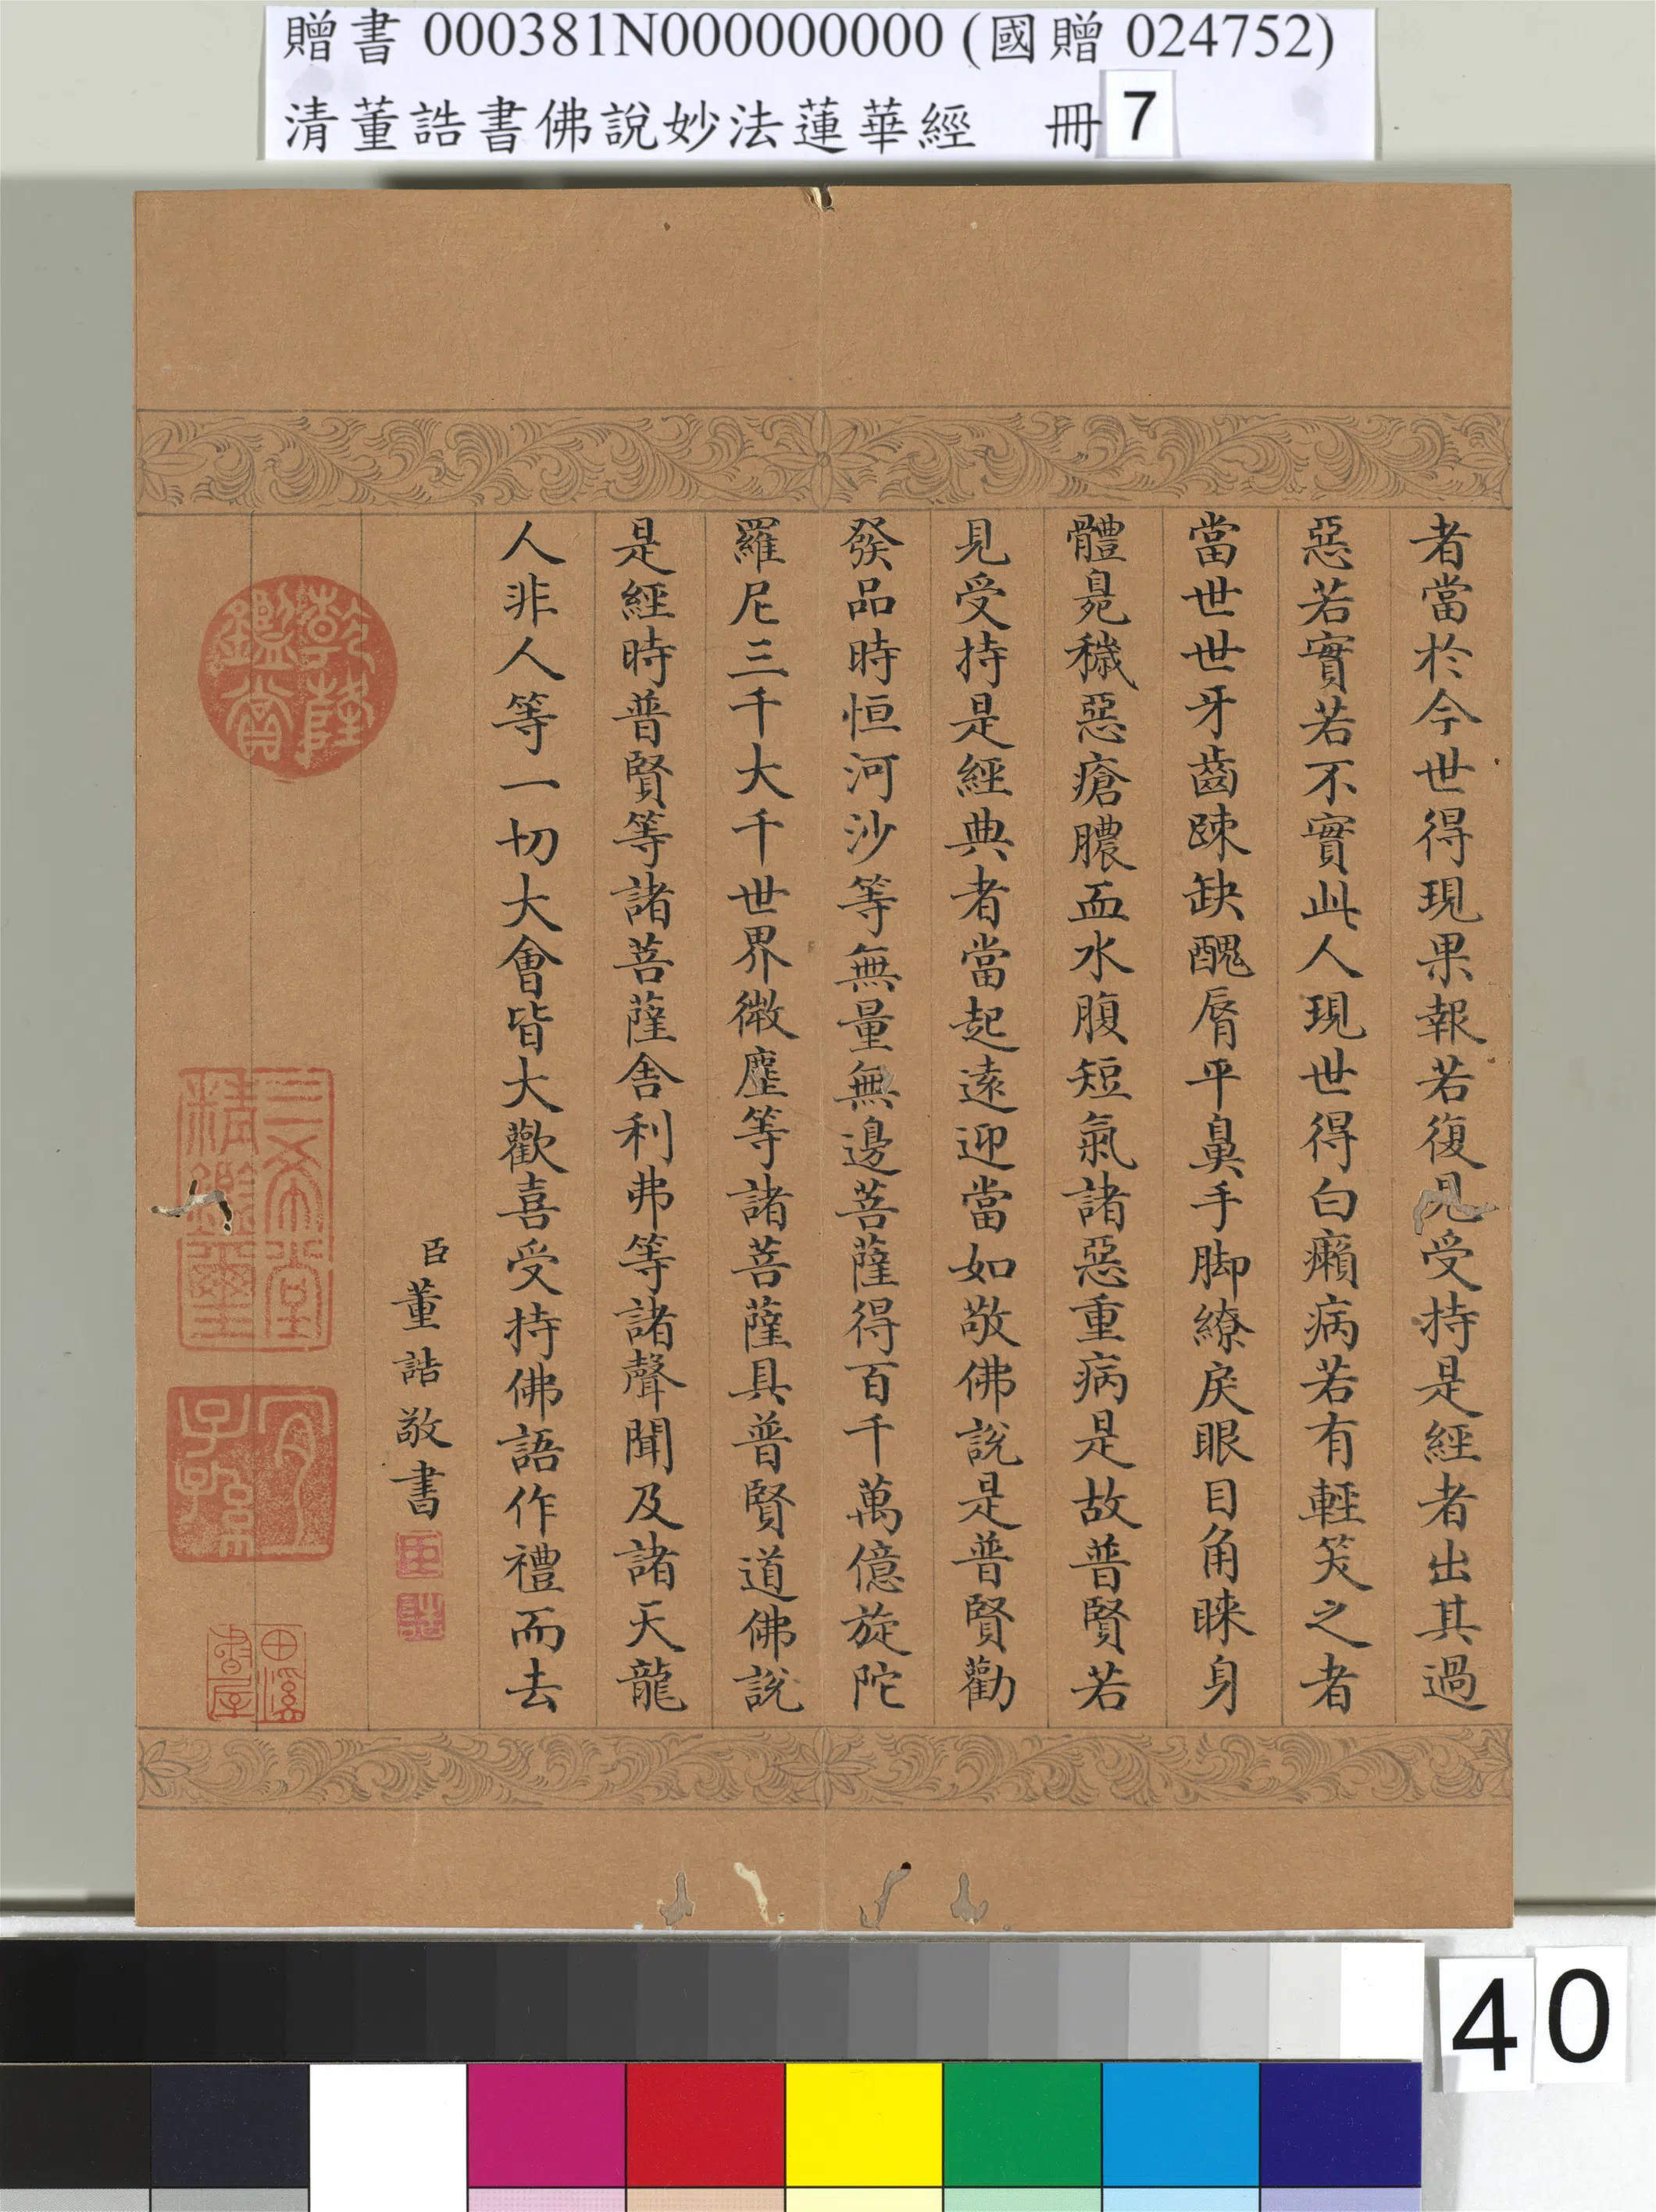 贈書 000381N000000000 (國贈 024752)
清董誥書佛說妙法蓮華經 冊7
者當於今世得現果報若復見受持是經者出其過
惡若實若不實此人現世得白癩病若有輕笑之者
當世世牙齒踈缺醜脣平鼻手脚繚戾眼目角睞身
體臰穢惡瘡膿血水腹短氣諸惡重病是故普賢若
見受持是經典者當起遠迎當如敬佛說是普賢勸
發品時恒河沙等無量無邊菩薩得百千萬億旋陀
羅尼三千大千世界微塵等諸菩薩具普賢道佛說
是經時普賢等諸菩薩舍利弗等諸聲聞及諸天龍
人非人等一切大會皆大歡喜受持佛語作禮而去
臣董誥敬書
臣
誥
乾隆鑑賞
三希堂精鑑璽
宜子孫
田溪書屋
40